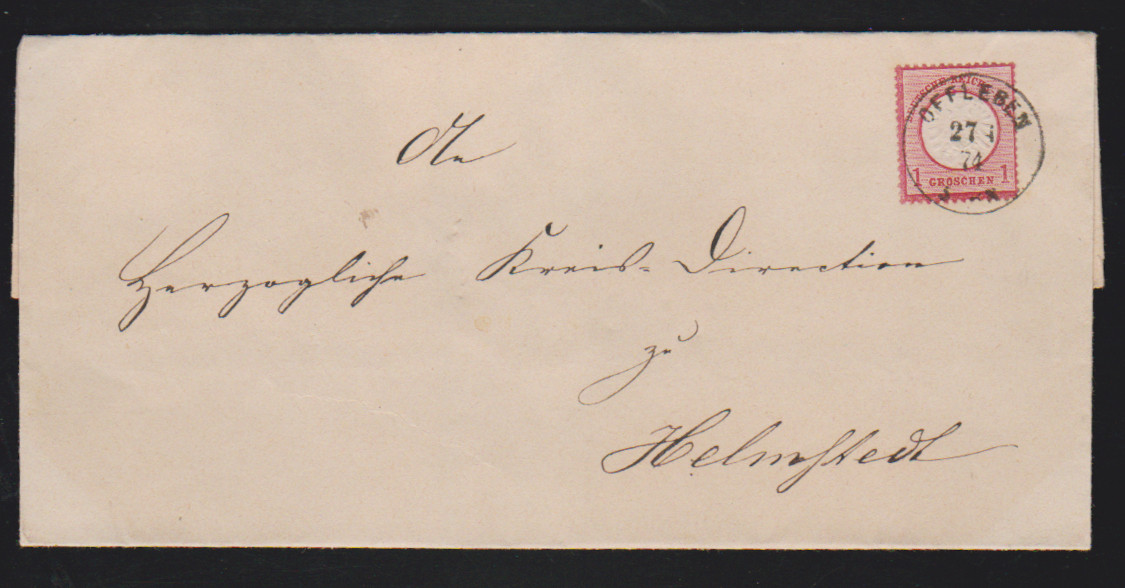 DEUTSCHE REICHS
OFFLEBEN
27
74
1 GROSCHEN 1
An
Herzogliche Kreis-Direction
zu
Helmstedt